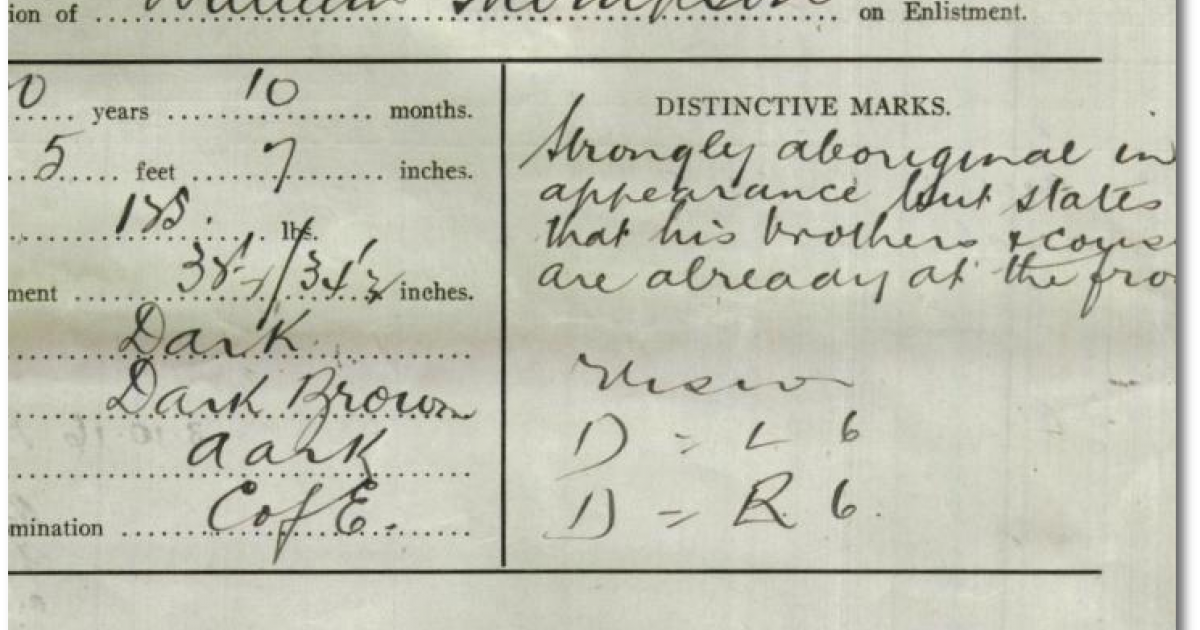 ion of William Thompson on Enlistment.
0 years 10 months.
5 feet 7 inches.
lbs.
ment inches.
Dark
Dark Brown
dark
mination C of E.
DISTINCTIVE MARKS.
Strongly aboriginal in
appearance but states
that his brothers & cous
are already at the fro
Vision
D = L 6
D = R 6.